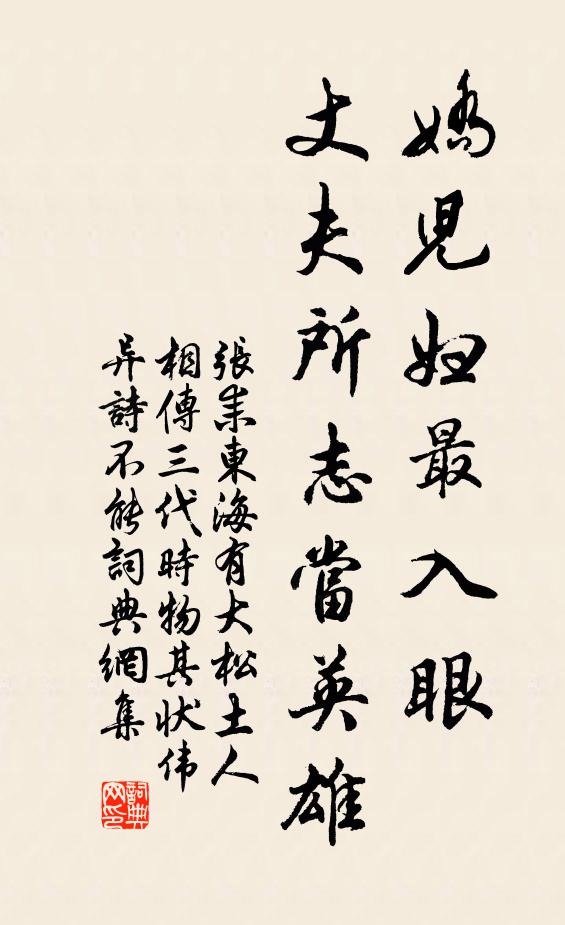 嬌兒婦最入眼
丈夫所志當英雄
張耒東海有大松土人
相傳三代時物其狀伟
异詩不能詞典網集
詞典
网印